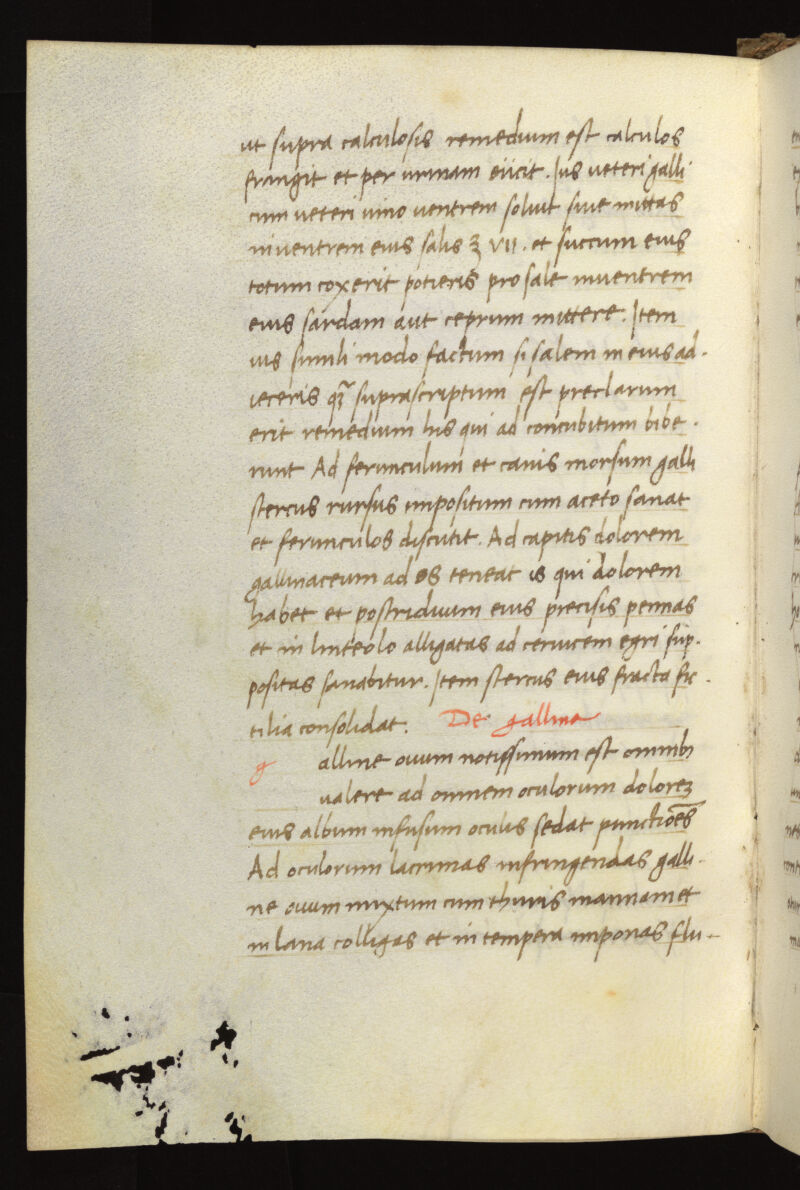 ut supra calculosis remedium est calculos
frangit et per urinam eiicit. Ius veteri galli
cum veteri vino ventrem solvit sive mittas
in ventrem eius salis ʒ VII. et succum eius
totum coxerit potieris pro sale inventrem
eius sardam aut ceprum mittere. Item
ius simili modo factum si salem in eius ad-
ieceris qᷓ suprascriptum est preclarum
erit remedium his qui ad concubitum bibe-
runt Ad ferunculum et canis morsum galli
stercus rursus impositum cum aceto sanat
et ferunculos discutit. Ad capitis dolorem
gallinaceum ad os teneat is qui dolorem
habet et postriduum eius precisis pennas
et in linteolo alligatas ad cervicem egri sup-
positas sanabitur. Item stercus eius fracta fic-
tilia consolidat. De galline
g alline ovum notissimum est omnibꝰ
valere ad omnem oculorum doloreʒ
eius album infusum oculis sedat punctiōes
Ad oculorum lacrimas infringendas galli-
ne ovum mixtum cum thuris mannam et
in lana colligas et in tempera imponas flu-